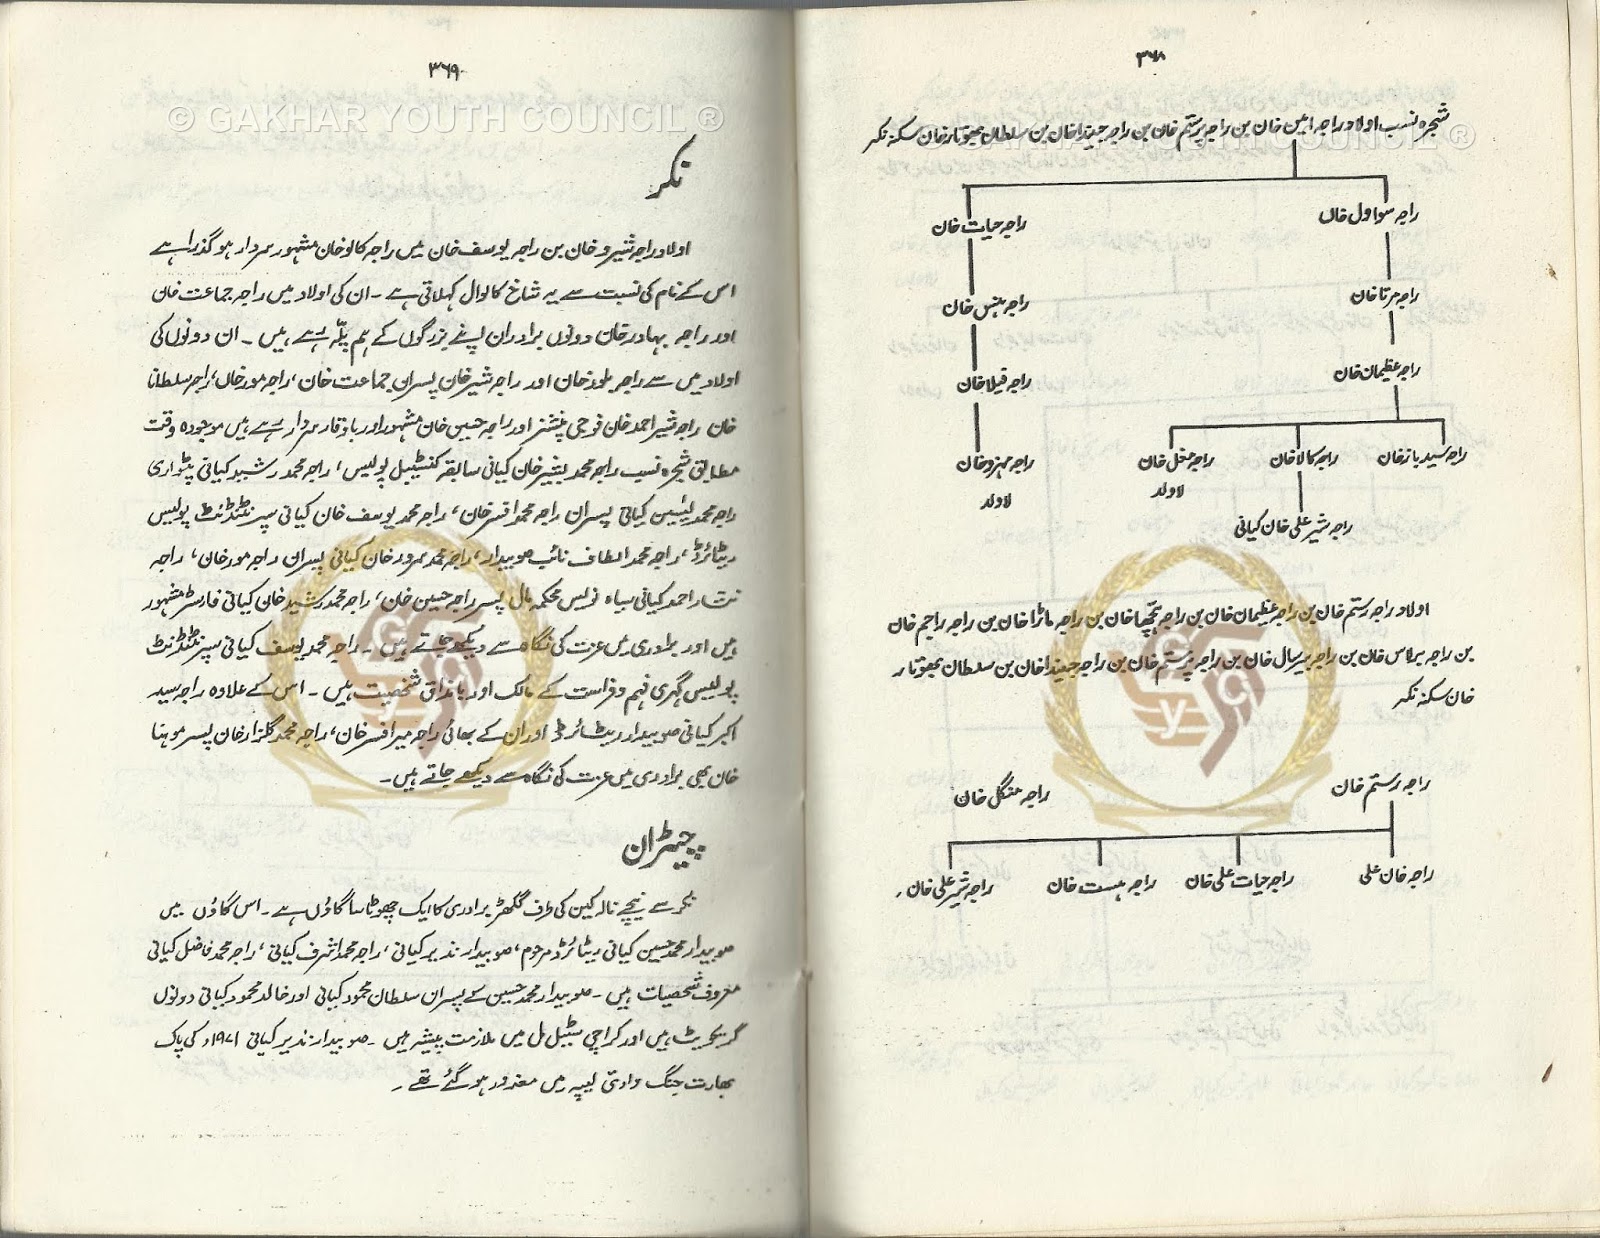 ۳۶۸
شجرہ نسب اولاد راجہ امین خان بن راجہ پرستم خان بن راجہ جیندا خان بن سلطان بھوتار خان سکنہ نکر
راجہ سواول خاں
راجہ حیات خان
راجہ مرتا خان
راجہ ہنس خان
راجہ عظیمان خان
راجہ فیلا خان
راجہ سید باز خان
راجہ کالا خان
راجہ مغل خان
لاولد
راجہ مہرو خان
لاولد
راجہ شیر علی خان کیانی
اولاد راجہ رستم خان بن راجہ عظیمان خان بن راجہ خان بن راجہ ماٹرا خان بن راجہ راجم خان
بن راجہ برلاس خان بن راجہ بیرسال خان بن راجہ پرستم خان بن راجہ جیندا خان بن سلطان بھوتار
خان سکنہ نکر
راجہ رستم خان
راجہ منگل خان
راجہ خان علی
راجہ حیات علی خان
راجہ ہست خان
راجہ شیر علی خان
© GAKHAR YOUTH COUNCIL ®
۳۶۹
© GAKHAR YOUTH COUNCIL ®
نکر
اولاد راجہ شیرو خان بن راجہ یوسف خان میں راجہ کالو خان مشہور سردار ہو گذرا ہے
اس کے نام کی نسبت سے یہ شاخ کالوال کہلاتی ہے ۔ ان کی اولاد میں راجہ جماعت خان
اور راجہ بہادر خان دونوں برادران اپنے بزرگوں کے ہم پلّہ رہے ہیں ۔ ان دونوں کی
اولاد میں سے راجہ بلور خان اور راجہ شیر خان پسران جماعت خان، راجہ مور خاں، راجہ سلطانا
خان راجہ شیر احمد خان فوجی پنشنر اور راجہ حسین خان مشہور اور باوقار سردار رہے ہیں موجودہ وقت
مطابق شجرہ نسب راجہ محمد بشیر خان کیانی سابقہ کنسٹیبل پولیس، راجہ محمد رشید کیانی پٹواری
راجہ محمد یٰسین کیانی پسران راجہ محمد افسر خان، راجہ محمد یوسف خان کیانی سپرنٹنڈنٹ پولیس
ریٹائرڈ، راجہ محمد الطاف نائب صوبیدار، راجہ محمد سرور خان کیانی پسران راجہ مور خان، راجہ
نثار احمد کیانی سیاہ نویس محکمہ مال پسر راجہ حسین خان، راجہ محمد رشید خان کیانی فارسٹر مشہور
ہیں اور برادری میں عزت کی نگاہ سے دیکھے جاتے ہیں ۔ راجہ محمد یوسف کیانی سپرنٹنڈنٹ
پولیس گہری فہم و فراست کے مالک اور بامذاق شخصیت ہیں ۔ اس کے علاوہ راجہ سید
اکبر کیانی صوبیدار ریٹائرڈ اور ان کے بھائی راجہ میر افسر خان، راجہ محمد گلزار خان پسر موہنا
خان بھی برادری میں عزت کی نگاہ سے دیکھے جاتے ہیں ۔
چہڑان
نکر سے نیچے نالہ کین کی طرف گکھڑ برادری کا ایک چھوٹا سا گاؤں ہے ۔ اس گاؤں میں
صوبیدار محمد حسین کیانی ریٹائرڈ مرحوم، صوبیدار نذیر کیانی، راجہ محمد اشرف کیانی، راجہ محمد فاضل کیانی
معروف شخصیات ہیں ۔ صوبیدار محمد حسین کے پسران سلطان محمود کیانی اور خالد محمود کیانی دونوں
گریجویٹ ہیں اور کراچی سٹیل مل میں ملازمت پیشہ ہیں ۔ صوبیدار نذیر کیانی ۱۹۷۱ء کی پاک
بھارت جنگ وادی لیپہ میں معذور ہو گئے تھے ۔